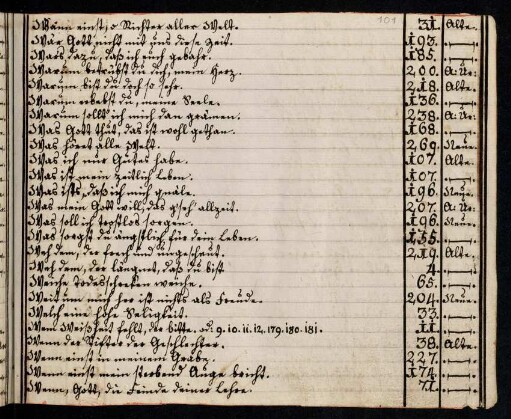 101
Wann einst, o Richter aller Welt. 31. Alte.
Wär Gott nicht mit uns diese Zeit. 193.
Was dazu, daß ich euch gebahr. 185.
Warum betrübst du dich, mein Herz. 200. A: Ur.
Warum bist du doch so sehr. 218. Alte.
Warum rebebst du, meine Seele. 136.
Warum sollt ich mich dan grämen. 238. A: Ur.
Was Gott thut, das ist wohl gethan. 168.
Was höret alle Welt. 269. Neue.
Was ich nur Gutes habe. 107. Alte.
Was ist mein zeitlich Leben. 107.
Was ists, daß ich mich quäle. 196. Neue.
Was mein Gott will, das gsch' allzeit. 207. A: Ur.
Was soll ich trostlos sorgen. 196. Neue.
Was sorgst du ängstlich für dein Leben. 155.
Weh dem, der frech und ungescheut. 219. Alte.
Weh dem, der läugnet, daß du bist 4.
Weiche Todesschrecken weiche. 65.
Weit um mich her ist nichts als Freude. 204. Neue.
Welch eine hohe Seligkeit. 33.
Wem Weißheit fehlt, der bitte. od: 9. 10. 11. 12. 179. 180. 181. 11.
Wenn der Stifter der Geschlechter. 38. Alte.
Wenn einst in meinem Grabe. 227.
Wenn einst mein sterbend Auge bricht. 174.
Wenn, Gott, die Feinde deiner Lehre 71.